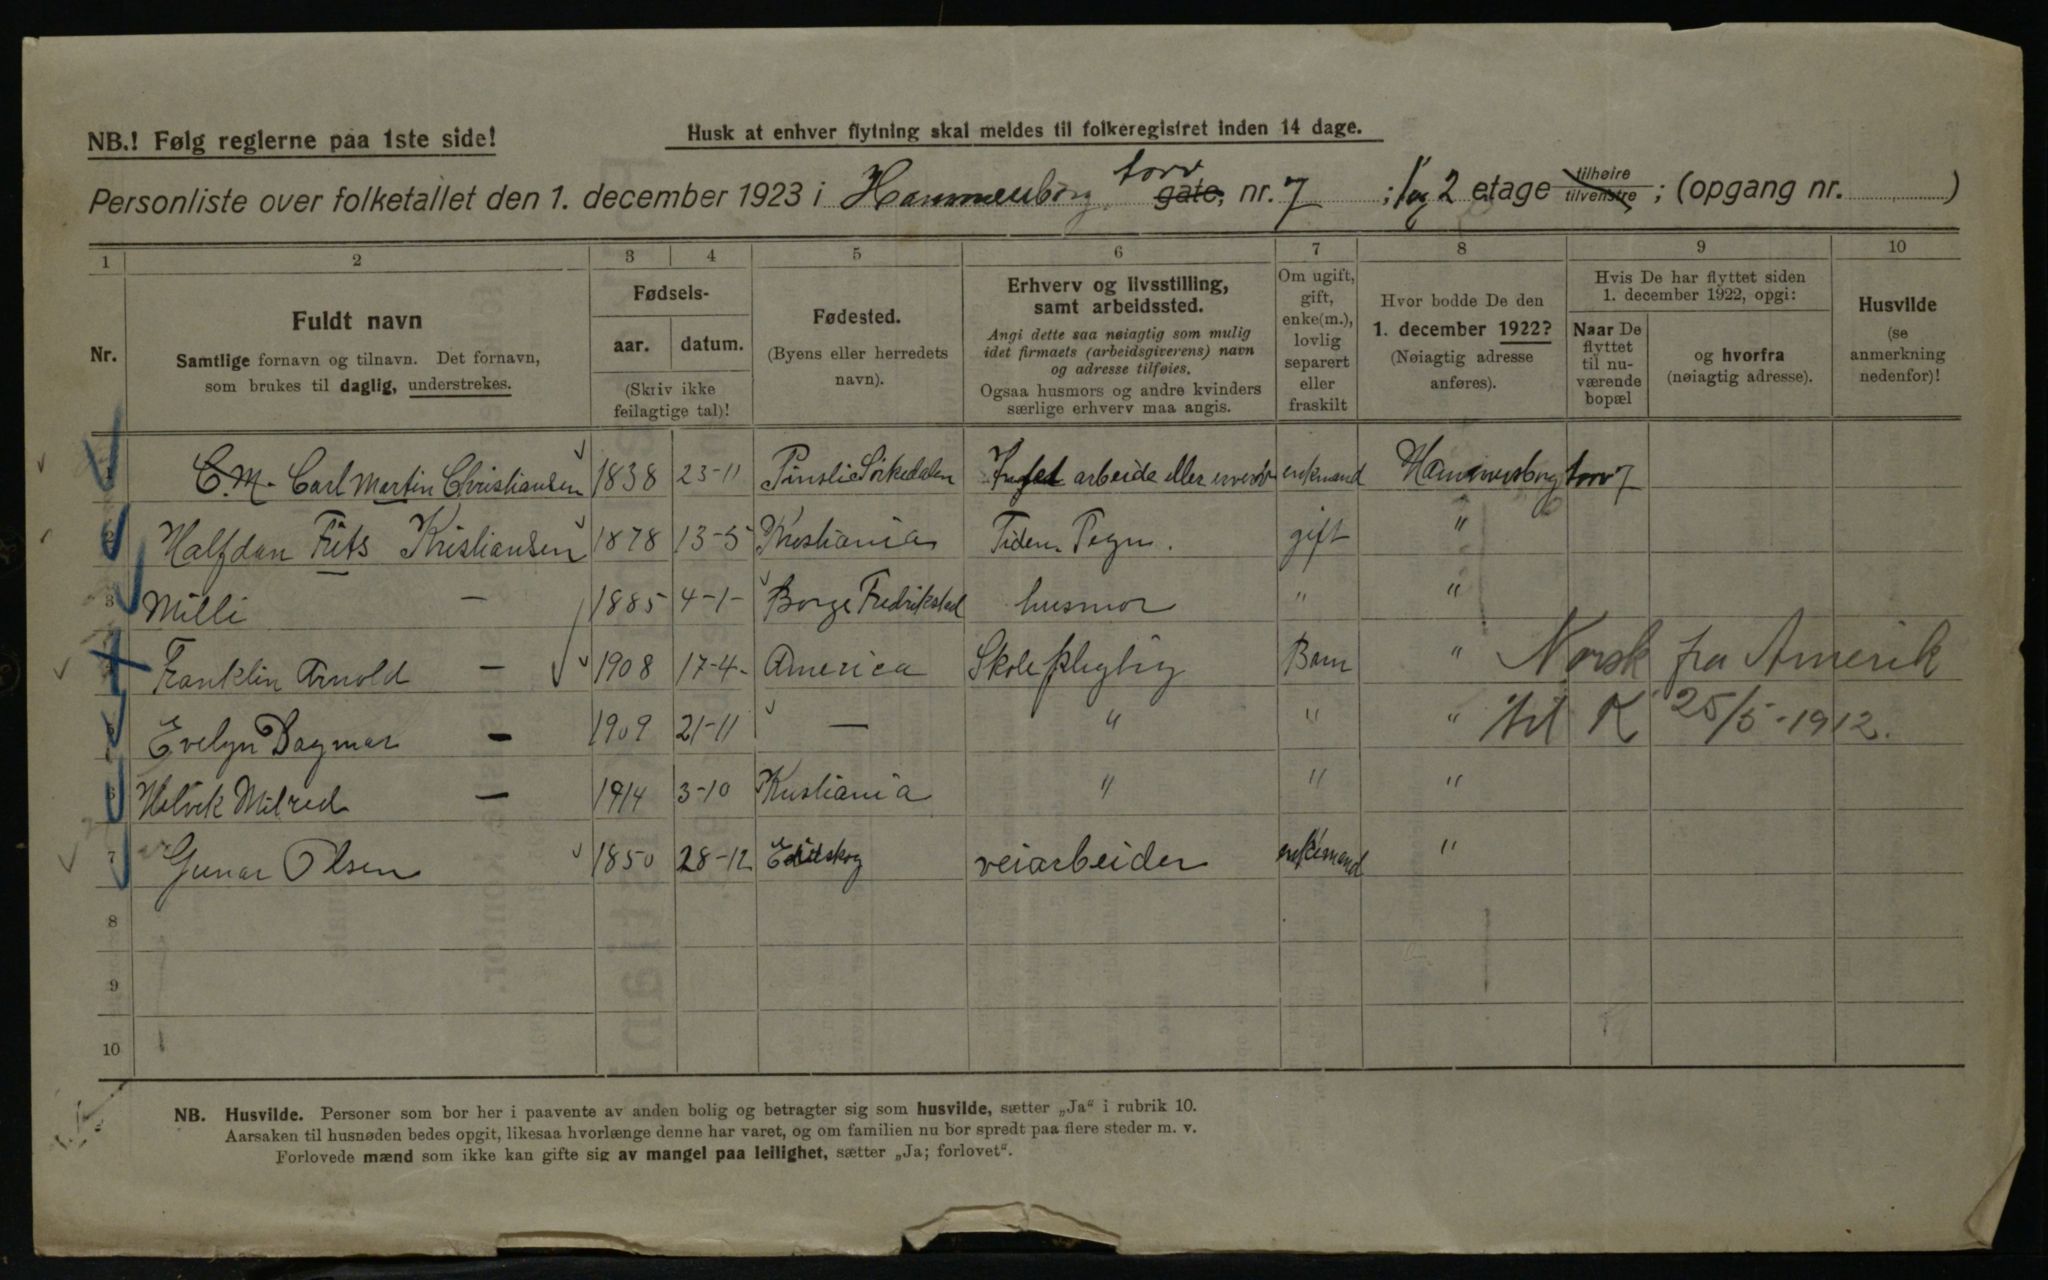 NB.! Følg reglerne paa 1ste side!
Husk at enhver flytning skal meldes til folkeregistret inden 14 dage.
Personliste over folketallet den 1. december 1923 i Hammersborg torv gate, nr. 7 ; 1 og 2 etage tilhøire tilvenstre ; (opgang nr. )
1 2 3 4 5 6 7 8 9 10
Nr.
Fuldt navn
Samtlige fornavn og tilnavn. Det fornavn,
som brukes til daglig, understrekes.
Fødsels-
aar. datum.
(Skriv ikke
feilagtige tal)!
Fødested.
(Byens eller herredets
navn).
Erhverv og livsstilling,
samt arbeidssted.
Angi dette saa nøiagtig som mulig
idet firmaets (arbeidsgiverens) navn
og adresse tilføies.
Ogsaa husmors og andre kvinders
særlige erhverv maa angis.
Om ugift,
gift,
enke(m.),
lovlig
separert
eller
fraskilt
Hvor bodde De den
1. december 1922?
(Nøiagtig adresse
anføres).
Hvis De har flyttet siden
1. december 1922, opgi:
Naar De
flyttet
til nu-
værende
bopæl
og hvorfra
(nøiagtig adresse).
Husvilde
(se
anmerkning
nedenfor)!
C.M. Carl Martin Christiansen 1838 23-11 Sørkedalen Inget arbeide eller enkmand Hammersborg torv 7
2 Halfdan Frits Kristiansen 1878 13-5 Kristiania Tidens Tegn. gift "
3 Milli — 1885 4-1- Borge Fredrikstad husmor " "
Franklin Arnold — 1908 17-4- America Skolepligtig Barn " Norsk fra Amerik
5 Evelyn Dagmar — 1909 21-11 — " " " til K 25/5-1912.
6 Helvik Milred — 1914 3-10 Kristiania " " "
7 Gunar Olsen 1850 28-12 Eidskog veiarbeider enkemand "
8
9
10
NB. Husvilde. Personer som bor her i paavente av anden bolig og betragter sig som husvilde, sætter „Ja“ i rubrik 10.
Aarsaken til husnøden bedes opgit, likesaa hvorlænge denne har varet, og om familien nu bor spredt paa flere steder m. v.
Forlovede mænd som ikke kan gifte sig av mangel paa leilighet, sætter „Ja; forlovet“.